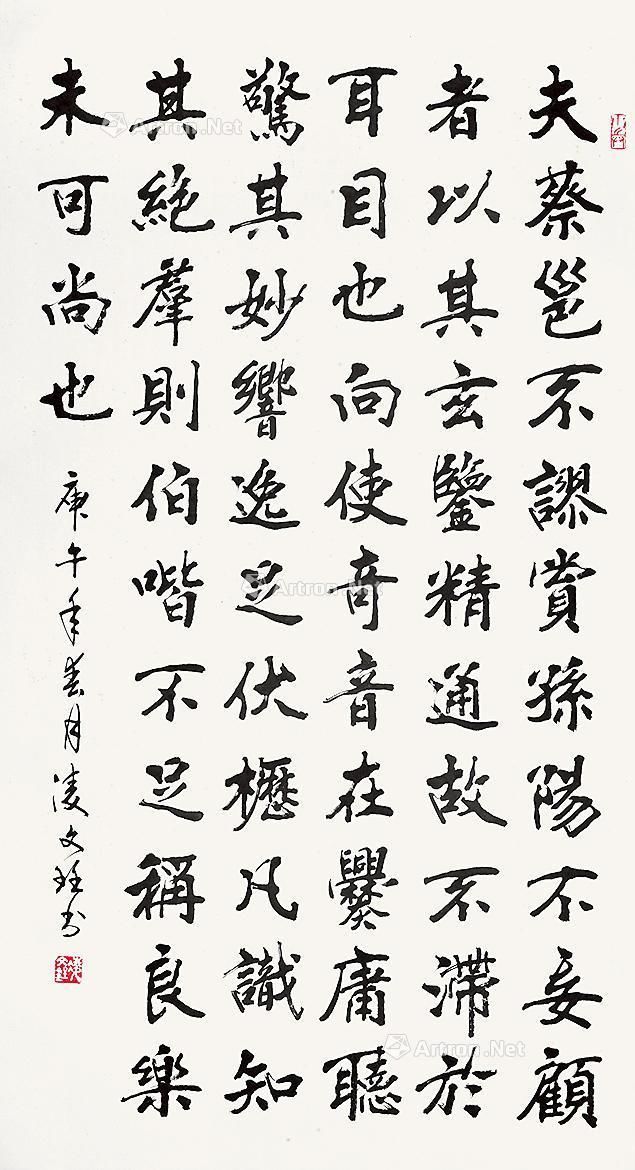 夫蔡邕不謬賞孫陽不妄顧
者以其玄鑒精通故不滯於
耳目也向使奇音在爨庸聽
驚其妙響逸足伏櫪凡識知
其絶羣則伯喈不足稱良樂
未可尚也
庚午年春月凌文书
Artron.Net
Artron.Net
Artron.Net